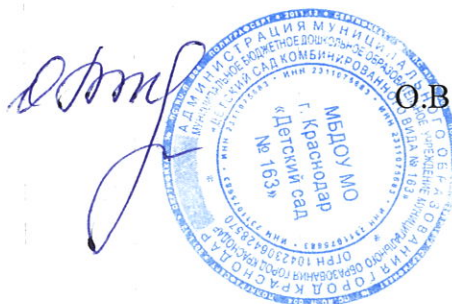 О.В
АДМИНИСТРАЦИЯ МУНИЦИПАЛЬНОГО ОБРАЗОВАНИЯ ГОРОД КРАСНОДАР
МУНИЦИПАЛЬНОЕ БЮДЖЕТНОЕ ДОШКОЛЬНОЕ ОБРАЗОВАТЕЛЬНОЕ УЧРЕЖДЕНИЕ МУНИЦИПАЛЬНОГО ОБРАЗОВАНИЯ ГОРОД КРАСНОДАР
«ДЕТСКИЙ САД КОМБИНИРОВАННОГО ВИДА № 163»
ОГРН 1042306428570
ИНН 2311075683
МБДОУ МО
г. Краснодар
«Детский сад
№ 163»